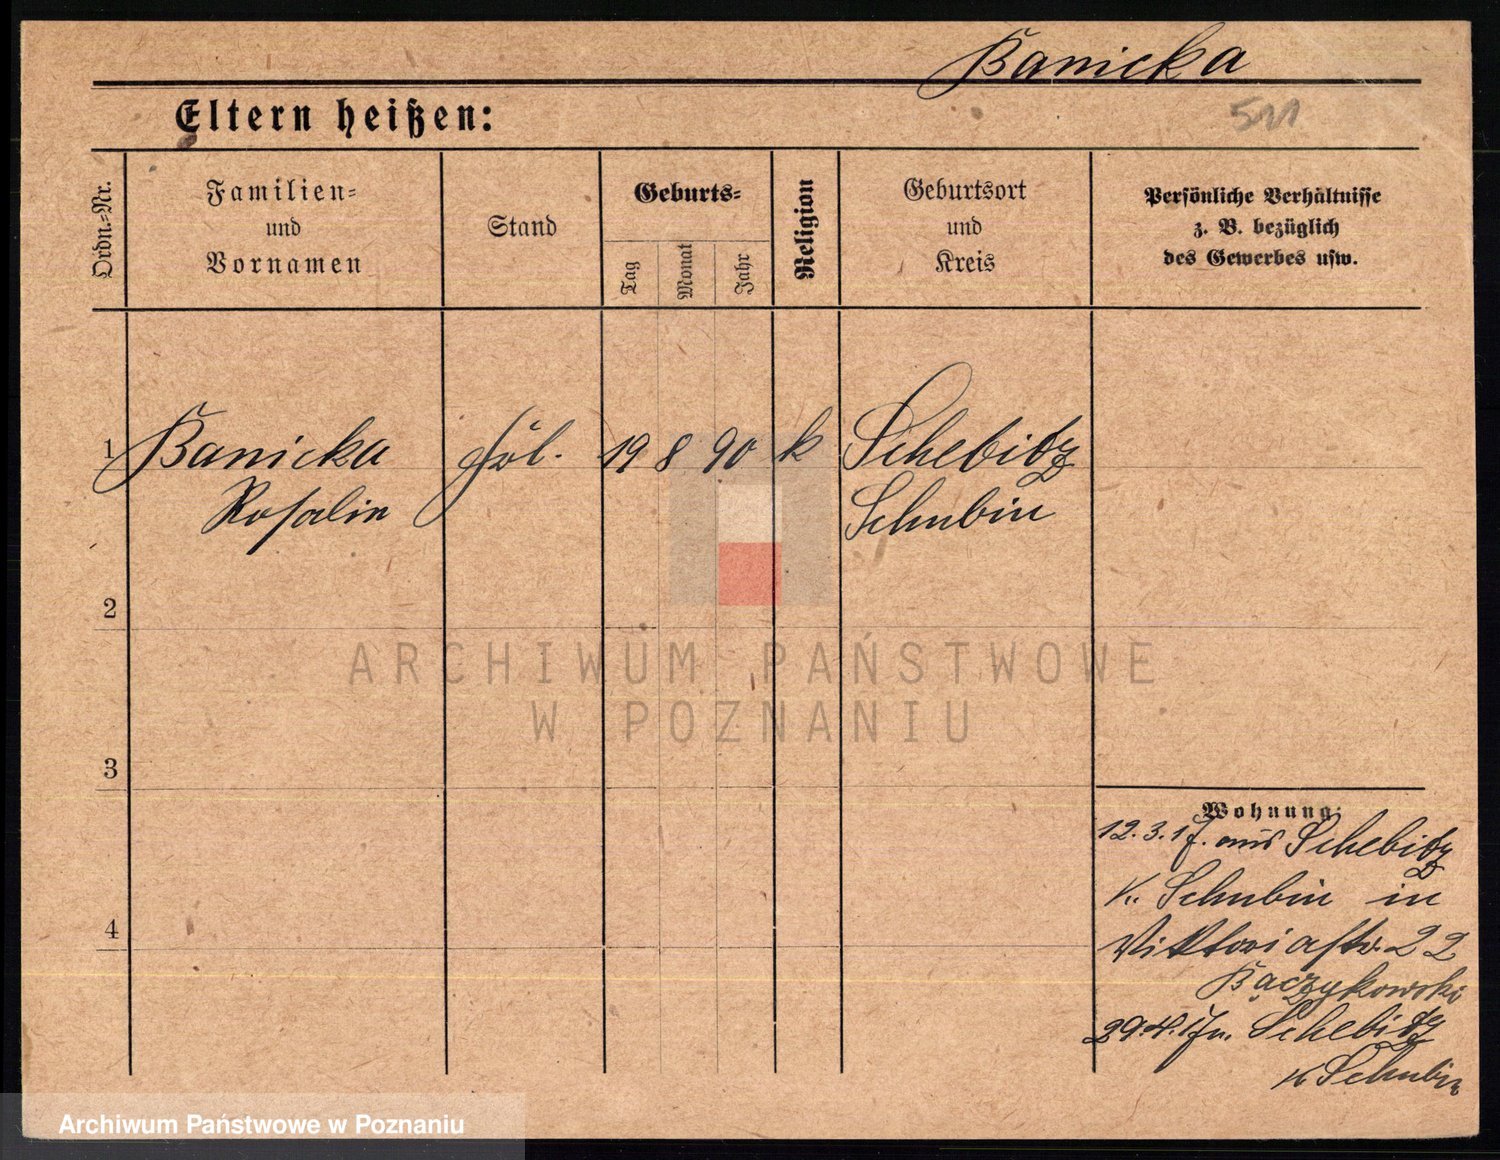 Banicka
Eltern heißen:
511
Ordn.-Nr.
Familien-
und
Vornamen
Stand
Geburts-
Tag
Monat
Jahr
Religion
Geburtsort
und
Kreis
Persönliche Verhältnisse
z. B. bezüglich
des Gewerbes usw.
1 Banicka 19 8 90 k Schebitz
Rosalin Schubin
2
3
4
Wohnung:
12.3.17. aus Schebitz
K. Schubin in
Viktoriastr. 22
Bączykowski
29.4.17 n. Schebitz
K Schubin
ARCHIWUM PAŃSTWOWE
W POZNANIU
Archiwum Państwowe w Poznaniu